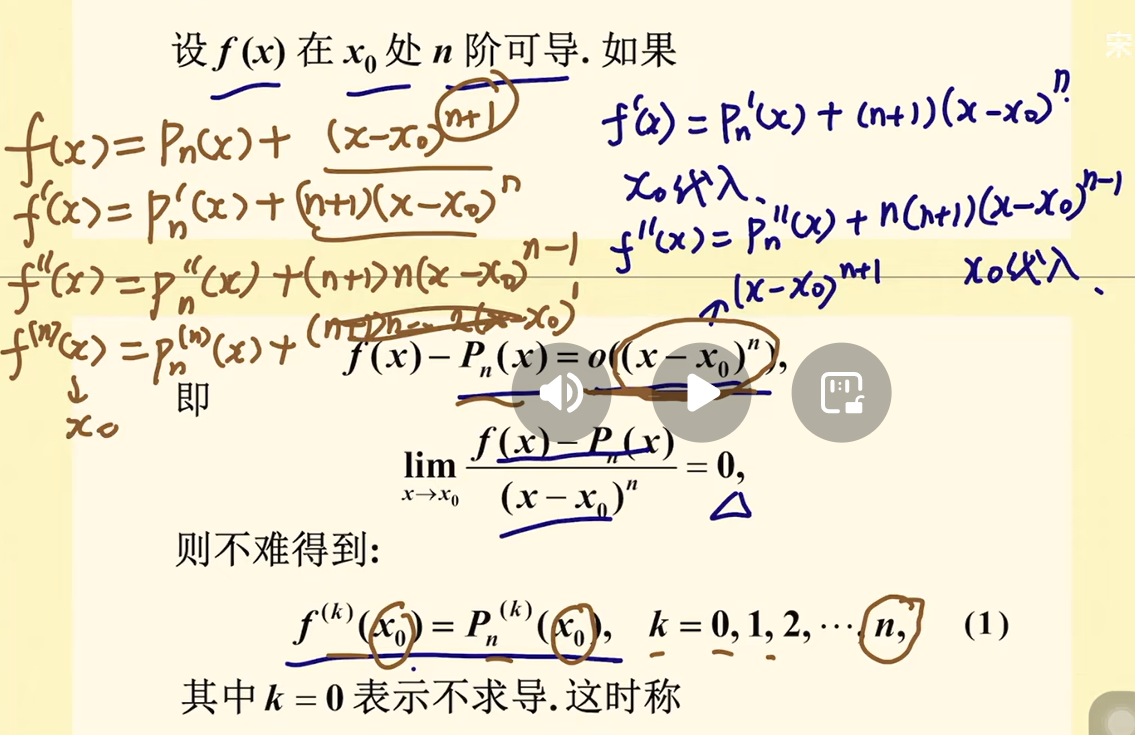 设 f(x) 在 x₀ 处 n 阶可导. 如果
宋
f(x) = Pₙ(x) + (x-x₀)ⁿ⁺¹
f'(x) = Pₙ'(x) + (n+1)(x-x₀)ⁿ
f''(x) = Pₙ''(x) + (n+1)n(x-x₀)ⁿ⁻¹
f⁽ⁿ⁾(x) = Pₙ⁽ⁿ⁾(x) + (n+1)n--2(x-x₀)'
↓
x₀
f'(x) = Pₙ'(x) + (n+1)(x-x₀)ⁿ
x₀代入、
f''(x) = Pₙ''(x) + n(n+1)(x-x₀)ⁿ⁻¹
x₀代入、
↗(x-x₀)ⁿ⁺¹
f(x) - Pₙ(x) = o((x-x₀)ⁿ),
即
lim x→x₀ (f(x) - Pₙ(x)) / (x-x₀)ⁿ = 0,
则不难得到:
f⁽ᵏ⁾(x₀) = Pₙ⁽ᵏ⁾(x₀), k = 0, 1, 2, ⋯, n, (1)
其中 k = 0 表示不求导. 这时称